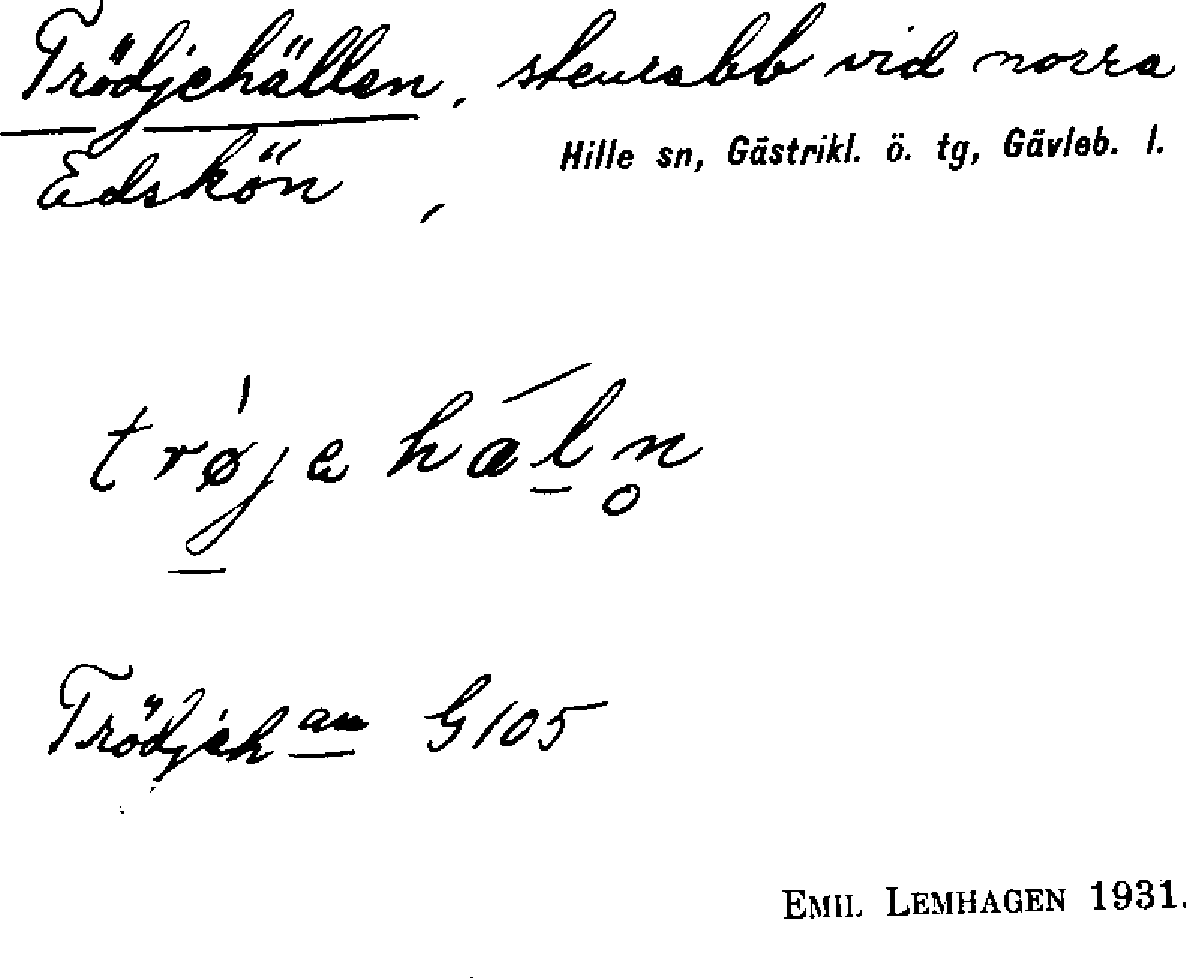 Trödjehällen, stenrabb vid norra
Edskön,
Hille sn, Gästrikl. ö. tg, Gävleb. l.
trø̀jehäln̥
Trödjeh an G105
EMIL LEMHAGEN 1931.